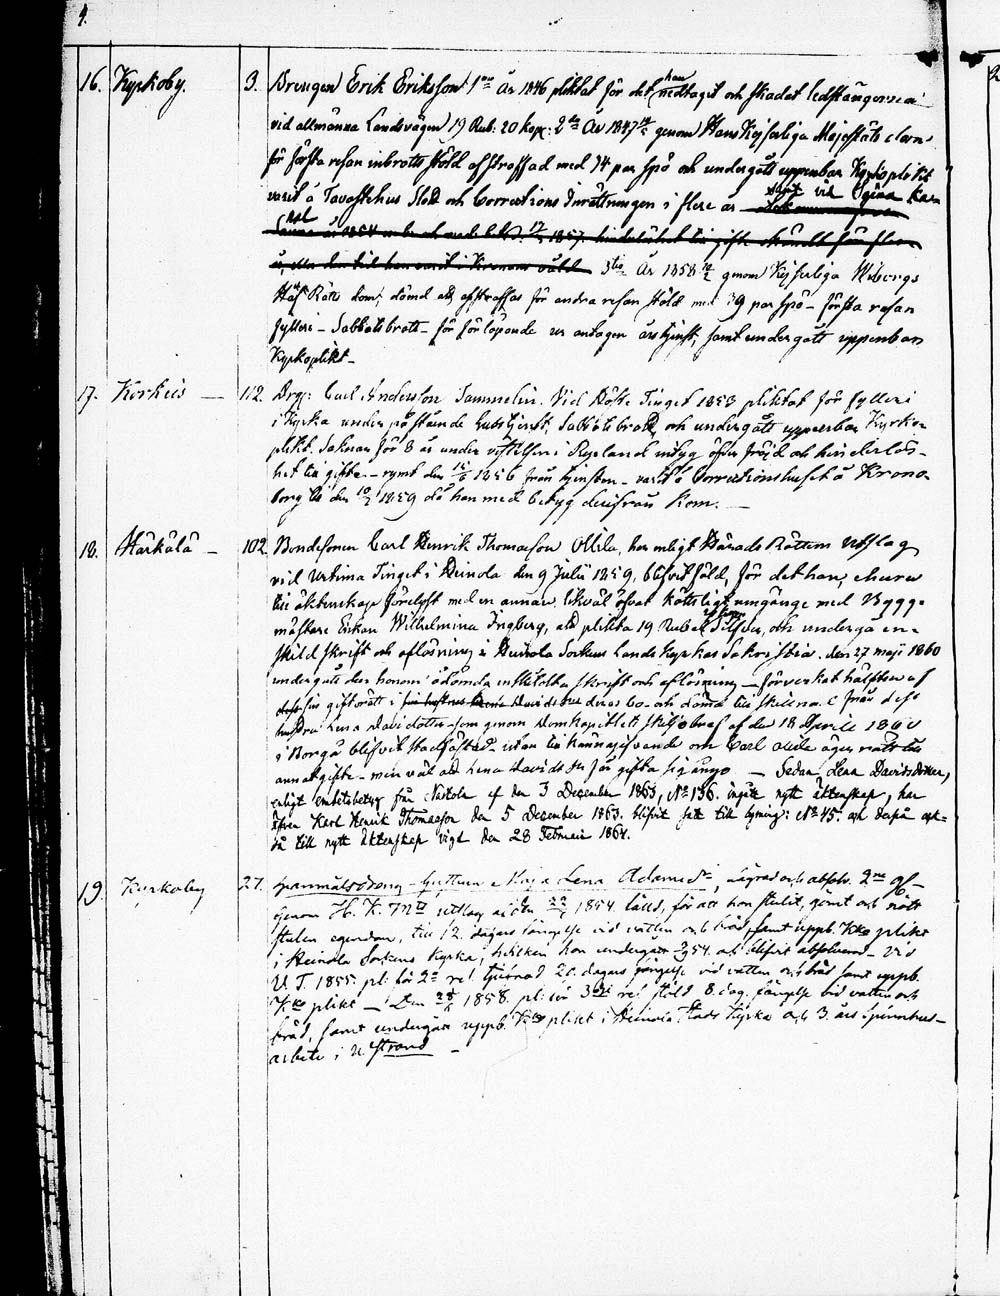 4.
16. Kyrkoby. 3. Drengen Erik Eriksson 1mo År 1846 pliktat för det han nedtagit och skadat ledstängerna
vid allmänna Landsvägen 19 Rub: 20 kop: 2do År 1847 genom Hans Kejserliga Majestäts dom
för första resan inbrotts stöld afstraffad med 14 par spö och undergått uppenbar Kyrkoplikt
varit å Tavastehus Slott och Corrections Inrättningen i flere år varit vid egna
3tio År 1858 genom Kejserliga Wiborgs
Hof Rätts dom, dömd att afstraffas för andra resan stöld med 39 par spö - första resan
fylleri - Sabbatsbrott - för förlöpande ur antagen årstjenst, samt undergått uppenbar
Kyrkoplikt -
17. Korkeis — 112. Drg: Carl Andersson Tammelin. Vid Höste Tinget 1853 pliktat för fylleri
i Kyrka under påstående Gudstjenst, Sabbatsbrott, och undergått uppenbar Kyrko-
plikt. Saknar för 8 år under vistelsen i Ryssland intyg öfver fräjd och hinderlös-
het till gifte - rymt den 1856 från tjensten - varit å Correctionshuset å Krono-
borg till den 10/2 1859 då han med betyg derifrån kom. —
18. Härkälä — 102 Bondesonen Carl Henrik Thomasson Ollila, har enligt Härads Rättens Utslag
vid Urtima Tinget i Heinola den 9 Julii 1859, blifvit fäld, för det han, ehuru
till äktenskap förelofst med en annan, likväl öfvat köttsligt umgänge med Bygg-
mästare Enkan Wilhelmina Ingberg, att plikta 19 Rubel Silfver, och undergå en-
skild skrift och aflösning i Heinola Sockens Lands Kyrkas Sakristia. den 27 maji 1860
undergått den honom ådömda enskildta skrift och aflösning - förverkat hälften af
sin giftorätt i deras bo och dömd till skillnad från dess
hustru Lena Davidsdotter som genom Domkapitlets skiljobref af den 18 Aprill 1860
i Borgå blifvit stadfästad - utan tillkännagifvande om Carl Ollila äger rätt till
annat gifte - men väl att Lena Davidsdr får gifta sig ånyo — Sedan Lena Davidsdotter,
enligt embetsbetyg från Nastola af den 3 December 1863, No 136. ingått nytt äktenskap, har
äfven Karl Henrik Thomasson den 5 December 1863. blifvit satt till lysning: No 45. och derpå ock-
så till nytt äktenskap vigd den 28 Februari 1864.
19. Kyrkoby 27. Kaja Lena Adamsdr, lägrad och absolv. 2ne gr -
Genom H. R. utslag af den 1854 fälld, för att hon stulit, gömt och nött
stulen egendom, till 12 dagars fängelse vid vatten och bröd, samt uppb. Kko plikt
i Heinola Sockens Kyrka, hvilken hon undergått 54. och blifvit absolverad - vid
U. T. 1855. pl. för 2a res. tjufnad 20. dagars fängelse vid vatten och bröd samt uppb.
Kko plikt — Den 1858. pl: för 3dje res stöld 8. dag. fängelse vid vatten och
bröd, samt undergått uppb. Kko plikt i Heinola Stads Kyrka och 3. års Spinnhus-
arbete i N. Strand -